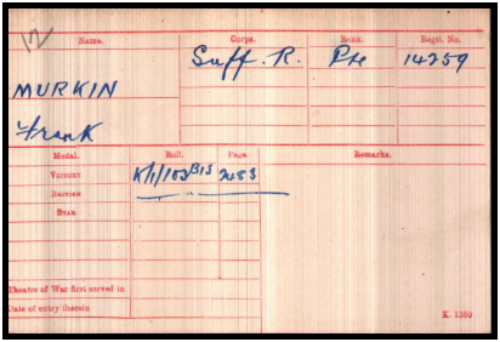 12
Name. Corps. Rank. Regtl. No.
Suff. R. Pte 14259
MURKIN
Frank
Medal. Roll. Page. Remarks.
VICTORY K/1/103B15 2483
BRITISH
STAR
Theatre of War first served in
Date of entry therein
K. 1380